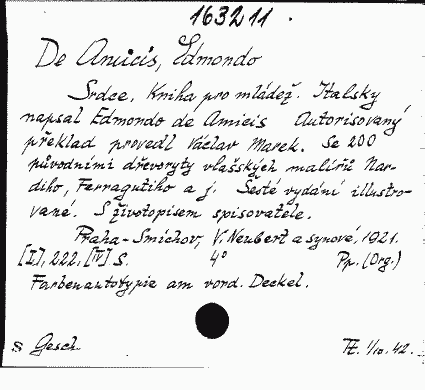 163211.
De Amicis, Edmondo
Srdce. Kniha pro mládež. Italsky
napsal Edmondo de Amicis Autorisovaný
překlad provedl Václav Marek. Se 200
původními dřevoryty vlašských malířů Nar-
diho, Ferragutiho a j. Šesté vydání illustro-
vané. S životopisem spisovatele.
Praha-Smíchov, V. Neubert a synové, 1921.
[I], 222, [IV] S. 4° Pp. (Org.)
Farbenautotypie am vord. Deckel.
S Gesch. 1/10. 42.